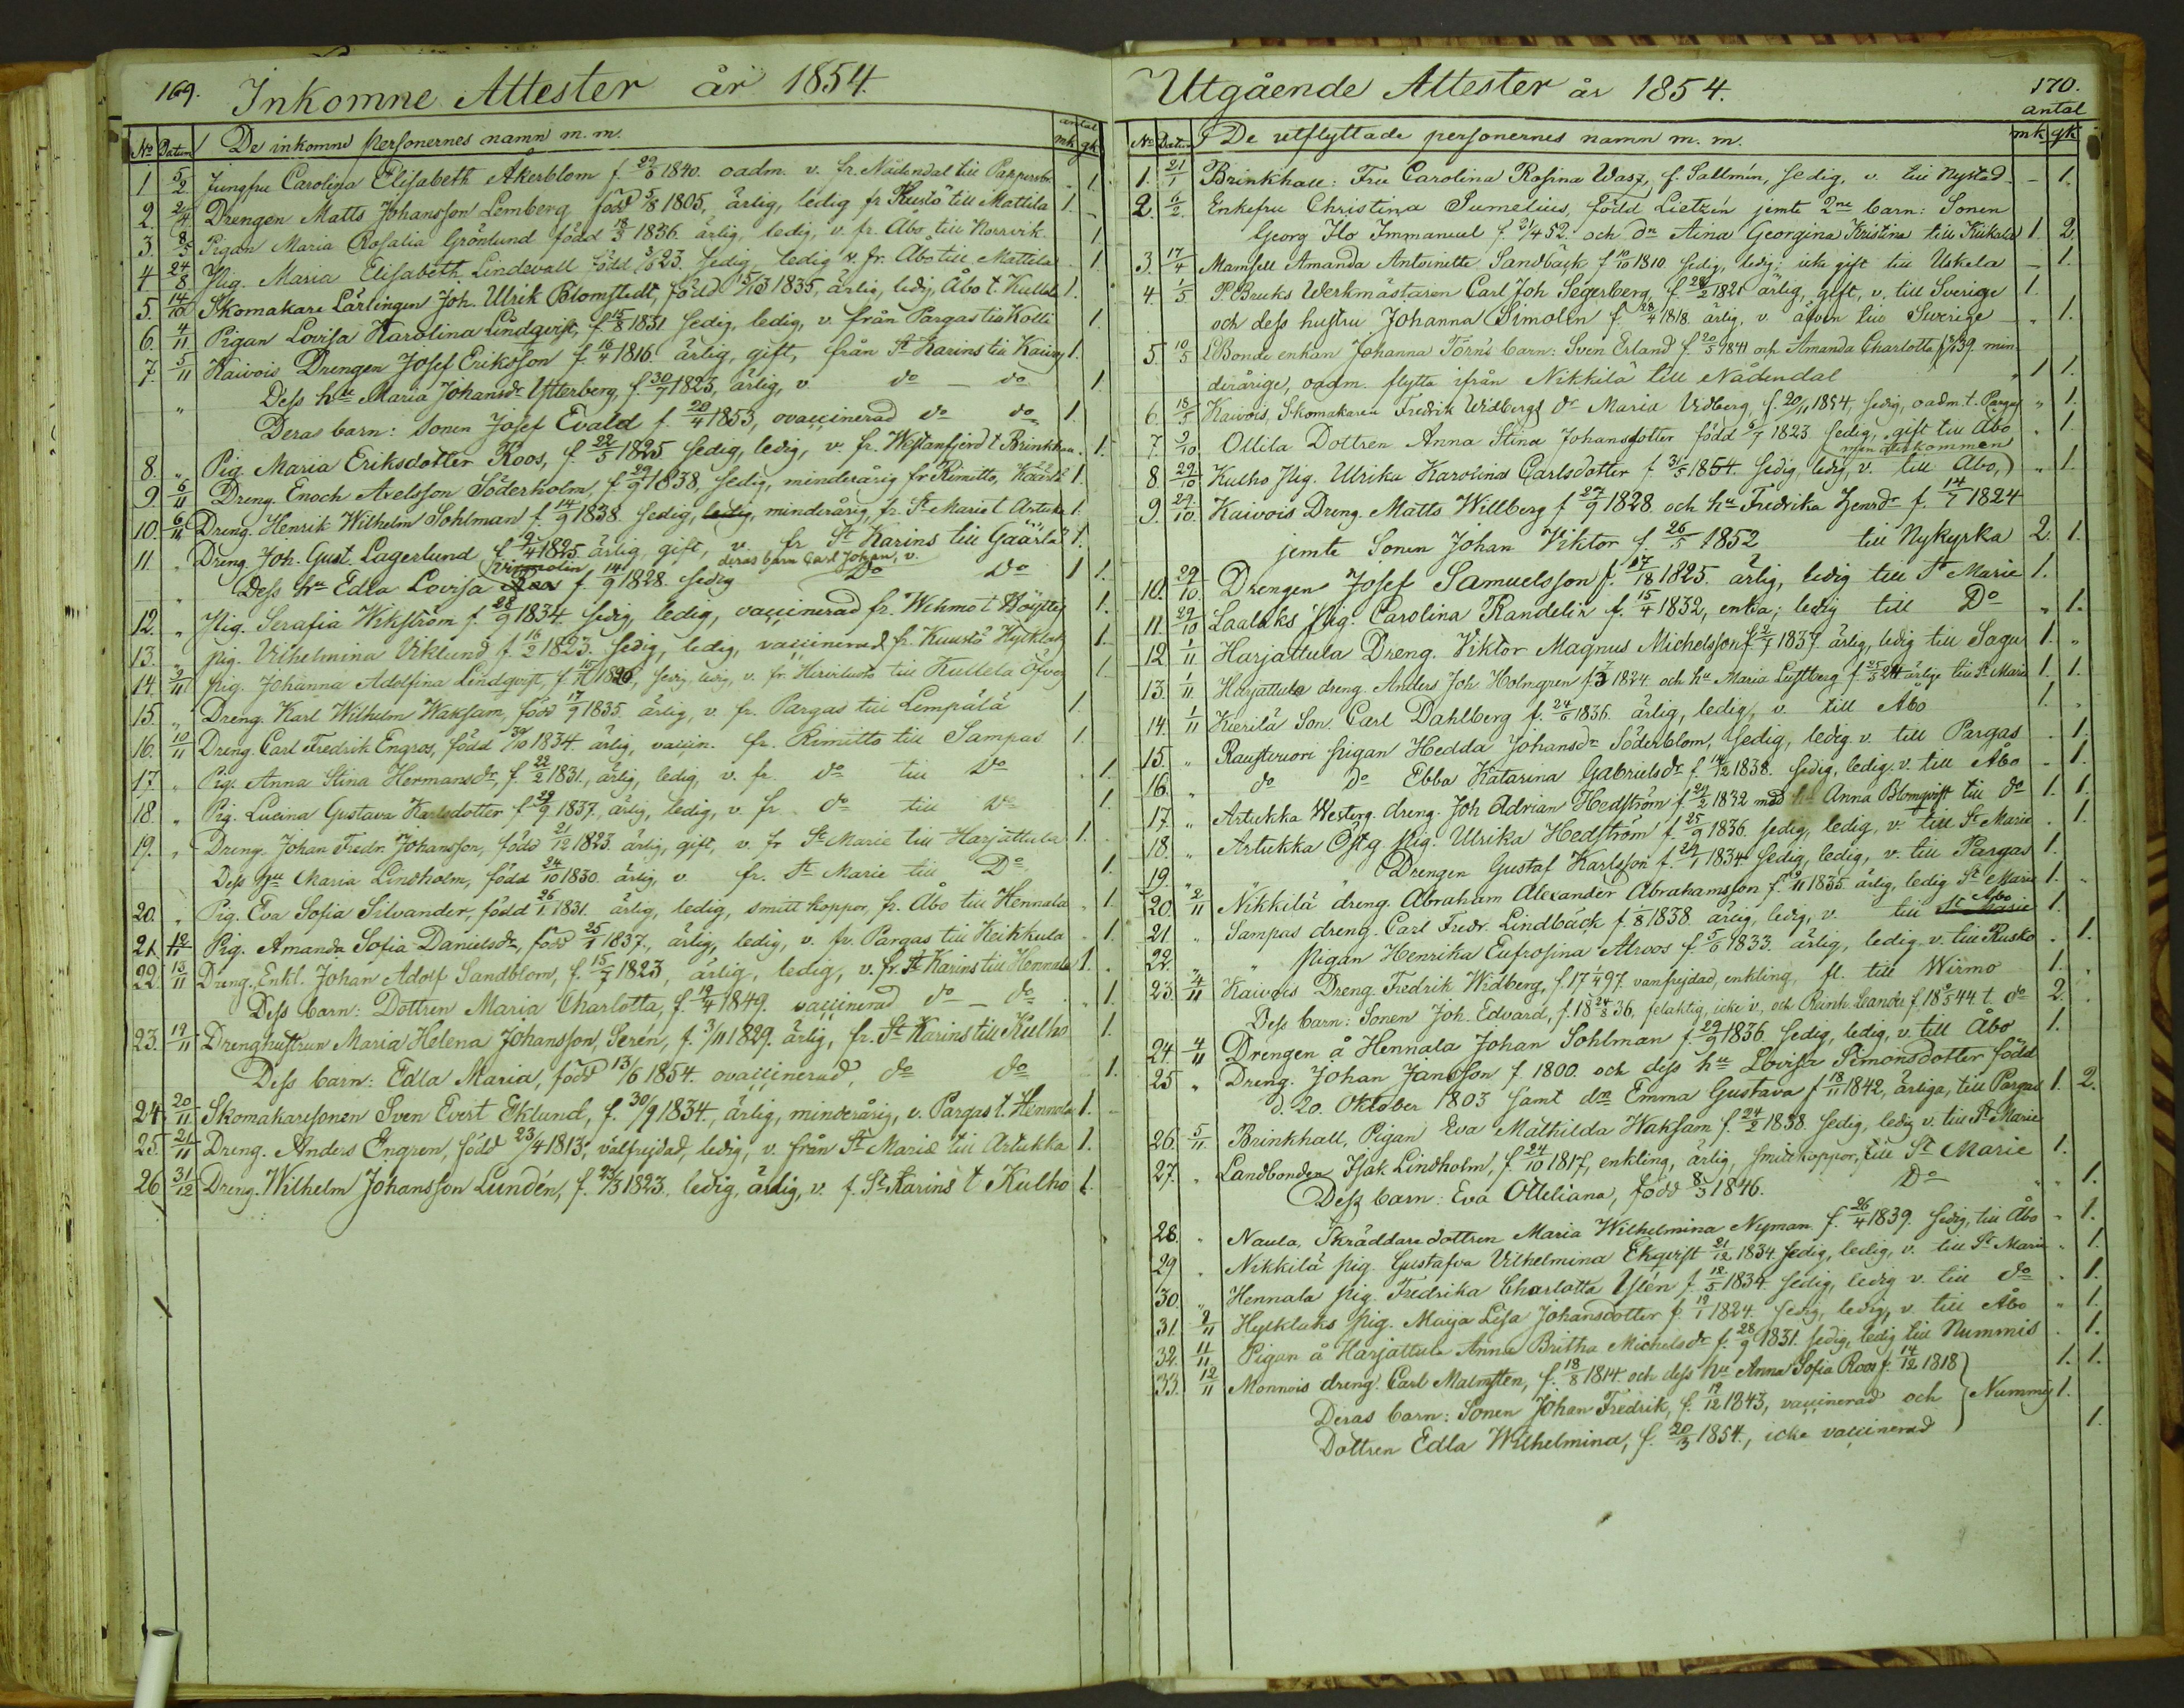 169. Inkomne Attester år 1854.
No Datum De inkomne personernes namn m. m. antal mk gk
1 5/2 Jungfru Carolina Elisabeth Åkerblom f. 1840. oadm. v. fr. Nådendal till 1.
2. 2/4 Drengen Matts Johansson Lemberg född 5/8 1805, ärlig, ledig fr Kustö till Mattila 1. -
3. 8/5 Pigan Maria Rosalia Grönlund född 18/3 1836. ärlig, ledig, v. fr. Åbo till Norrvik. 1
4 24/8 Pig. Maria Elisabeth Lindevall född 23. sedig, ledig v. fr. Åbo till Mattila 1.
5. 14/10 Skomakare Lärlingen Joh. Ulrik Blomstedt, född 1835, ärlig, ledig, Åbo t. Kullela 1.
6. 4/11 Pigan Lovisa Karolina Lindqvist, f. 15/8 1831 sedig, ledig, v. från Pargas till Kolli 1.
7. 5/11 Kaivois Drengen Josef Eriksson f. 16/4 1816. ärlig, gift, från St Karins till 1.
" Dess hu Maria Johansdr Ytterberg, f. 30/7 1825, ärlig, v. do - do 1.
Deras barn: sonen Josef Evald f. 20/4 1853, ovaccinerad do do 1.
8. " Pig. Maria Eriksdotter Roos, f. 22/5 1825 sedig, ledig, v. fr. Westanfjerd t Brinkhall. 1.
9 6/11 Dreng. Enoch Axelsson Söderholm, f. 29/9 1838, sedig, minderårig fr Rimitto, Kaärlä 1.
10. 6/11 Dreng. Henrik Wilhelm Sohlman f. 14/9 1838. sedig, ledig, minderårig, fr. St Marie t Artuka 1.
11. " Dreng. Joh. Gust. Lagerlund f. 9/4 1825 ärlig, gift, v. fr St Karins till Gäärlä 1.
Virmolin deras barn Carl Johan, v.
" Dess hu Edla Lovisa f. 14/9 1828. sedig Do Do 1 1.
12. " Pig. Serafia Wikström f. 28/9 1834. sedig, ledig, vaccinerad fr. Wehmo t 1.
13. " Pig. Vilhelmina Viklund f. 16/2 1823. sedig, ledig, vaccinerad fr. Kuustö 1.
14. 9/11 Pig. Johanna Adolfina Lindqvist, f. sedig, ledig, v. fr. Hirvituoto till Kullela 1.
15. " Dreng. Karl Wilhelm Waksam, född 17/9 1835. ärlig, v. fr. Pargas till Lempälä 1.
16. 10/11 Dreng. Carl Fredrik Engros, född 30/10 1834. ärlig, vaccin. fr. Rimitto till Sampas 1.
17 " Pig. Anna Stina Hermansdr, f. 22/2 1831., ärlig, ledig, v. fr. do till Do 1.
18. " Pig. Lucina Gustava Karlsdotter f 29/9 1837. ärlig, ledig, v. fr. do till Do 1.
19. " Dreng. Johan Fredr. Johansson, född 21/12 1823. ärlig, gift, v. fr St Marie till Harjattula 1.
Dess hu Maria Lindholm, född 24/10 1830. ärlig, v. fr. St Marie till Do 1.
20. " Pig. Eva Sofia Silvander, född 26/1 1831. ärlig, ledig, smitt koppor, fr. Åbo till Hennala 1.
21. 12/11 Pig. Amanda Sofia Danielsdr, född 25/1 1837., ärlig, ledig, v. fr. Pargas till Keikkula 1.
22. 13/11 Dreng. Enkl. Johan Adolf Sandblom, f. 15/7 1823, ärlig, ledig, v. fr. St Karins till Hennala 1.
Dess barn: Dottren Maria Charlotta, f. 19/4 1849. vaccinerad do - do 1.
23. 19/11 Drenghustrun Maria Helena Johansson, Serén, f. 3/11 1829. ärlig, fr. St Karins till Kulho 1.
Dess barn: Edla Maria, född 13/6 1854. ovaccinerad, do do 1.
24. 20/11 Skomakaresonen Sven Evert Eklund, f. 30/9 1834., ärlig, minderårig, v. Pargas t. Hennala 1.
25. 21/11 Dreng. Anders Engren, född 23/4 1813, välfrejdad, ledig, v. från St Marie till Artukka 1.
26 31/12 Dreng. Wilhelm Johansson Lundén, f. 1823. ledig, ärlig, v. f. St Karins t Kulho 1.
Utgående Attester år 1854. 170.
No Datum De utflyttade personernes namn m. m. antal mk gk
1. 21/1 Brinkhall: Fru Carolina Rosina Wasz, f. Sallmén, sedig, v. till Nystad - 1.
2. 6/2 Enkefru Christina Sumelius, född Lietzén jemte 2ne barn: Sonen
Georg Ilo Immanuel f. 52. och dn Aina Georgina Kristina till Kiikala 1. 2.
3. 17/4 Mamsell Amanda Antoinette Sandbäck f. 10/10 1810. sedig, ledig, icke gift till Uskela - 1.
4. 1/5 P. Bruks Werkmästaren Carl Joh Segerberg, f 28/2 1821 ärlig, gift, v. till Sverige 1.
och dess hustru Johanna Simolin f. 28/4 1818. ärlig, v. äfven till Sverige " 1.
5. 10/5 LBonde enkan Johanna Törn's barn: Sven Erland f. 20/5 1841 och Amanda Charlotta 39. min
derårige, oadm. flytta ifrån Nikkilä till Nådendal 1 1.
6. 18/5 Kaivois, Skomakaren Fredrik Widbergs dr Maria Vidberg, f. 20/11 1854, sedig, oadm. t. Pargas " 1.
7. 9/10. Ollila Dottren Anna Stina Johansdotter född 6/7 1823 sedig, gift till Åbo 1.
men återkommen
8. 29/10 Kulho Pig. Ulrika Karolina Carlsdotter f 31/5 1854. sedig, ledig, v. till Åbo, " 1.
9. 29/10. Kaivois Dreng. Matts Willberg f 27/9 1828. och hu Fredrika Henrdr f. 14/7 1824
jemte Sonen Johan Viktor f. 26/5 1852 till Nykyrka 2. 1.
10. 29/10. Drengen Josef Samuelsson f. 1825. ärlig, ledig till St Marie 1.
11. 29/10 Laalaks Pig. Carolina Randelin f. 15/4 1832, enka; ledig till Do " 1.
12 1/11 Harjattula Dreng. Viktor Magnus Michelsson f 2/7 1837 ärlig, ledig till Sagu 1. "
13. 1/11 Harjattula dreng. Anders Joh. Holmgren f. 1824. och hu Maria Luftberg f 25/5 24 ärlige till St Marie 1. 1.
14. 1/11 Kierilä Son. Carl Dahlberg f. 24/6 1836. ärlig, ledig, v. till Åbo 1. "
15. " Raustvuori Pigan Hedda Johansdr Söderblom, sedig, ledig v. till Pargas . 1.
16. " do Do Ebba Katarina Gabrielsdr f. 14/12 1838. sedig, ledig. v. till Åbo - 1.
17. " Artukka Westerg. dreng. Joh Adrian Hedström f. 24/2 1832 med hu Anna Blomqvist till do 1. 1.
18. " Artukka Östg Pig. Ulrika Hedström f. 25/9 1836. sedig, ledig, v. till St Marie . 1.
19. " " Drengen Gustaf Karlsson f. 29/1 1834. sedig, ledig, v. till Pargas 1.
20. 2/11 Nikkilä dreng. Abraham Alexander Abrahamsson f. 1835. ärlig, ledig St Marie 1.
21 " Sampas dreng. Carl Fredr. Lindbäck f. 1838 ärlig, ledig, v. till St Marie Åbo 1.
22. " " Pigan Henrika Eufrosina Alroos f. 5/6 1833. ärlig, ledig v. till Rusko . 1.
23. 4/11 Kaivois Dreng. Fredrik Widberg, f. 17 97. vanfrejdad, enkling, fl. till Wirmo 1.
Dess barn: Sonen Joh. Edvard, f. 18 24/8 36, felaktig, icke v., och Reinh. Leander f. 18 44 t. do 2.
24. 4/11 Drengen å Hennala Johan Sohlman f. 29/9 1836. sedig, ledig, v. till Åbo 1.
25 " Dreng. Johan Jansson f. 1800. och dess hu Lovisa Simonsdotter född
d. 20. Oktober 1803 samt dn Emma Gustava f 18/11 1842, ärliga, till Pargas 1. 2.
26. 5/11. Brinkhall, Pigan Eva Mathilda Waksam f. 24/2 1838. sedig, ledig v. till St Marie
27. " Landbonden Isak Lindholm, f. 24/10 1817, enkling, ärlig, smittkoppor, till St Marie 1.
Dess barn: Eva Otteliana, född 8/3 1846. Do " 1.
28. " Naula, Skräddaredottren Maria Wilhelmina Nyman. f. 26/4 1839. sedig, till Åbo " 1.
29 " Nikkilä Pig. Gustafva Vilhelmina Ekqvist 21/12 1834. sedig, ledig, v. till St Marie 1.
30. " Hennala Pig. Fredrika Charlotta Ylén f. 18/5 1834 sedig, ledig v. till do " 1.
31. 9/11 Hylklaks Pig. Maija Lisa Johansdotter f. 19/1 1824. sedig, ledig, v. till Åbo " 1.
32. 11/11. Pigan å Harjattula Anna Britha Michelsdr f. 28/9 1831. sedig, ledig till Nummis . 1.
33. 12/11 Monnois dreng. Carl Malmsten, f. 18/8 1814 och dess hu Anna Sofia Roos f. 14/12 1818 1. 1.
Deras barn: Sonen Johan Fredrik, f. 19/12 1843, vaccinerad och Nummis 1.
Dottren Edla Wilhelmina, f. 20/3 1854., icke vaccinerad 1.